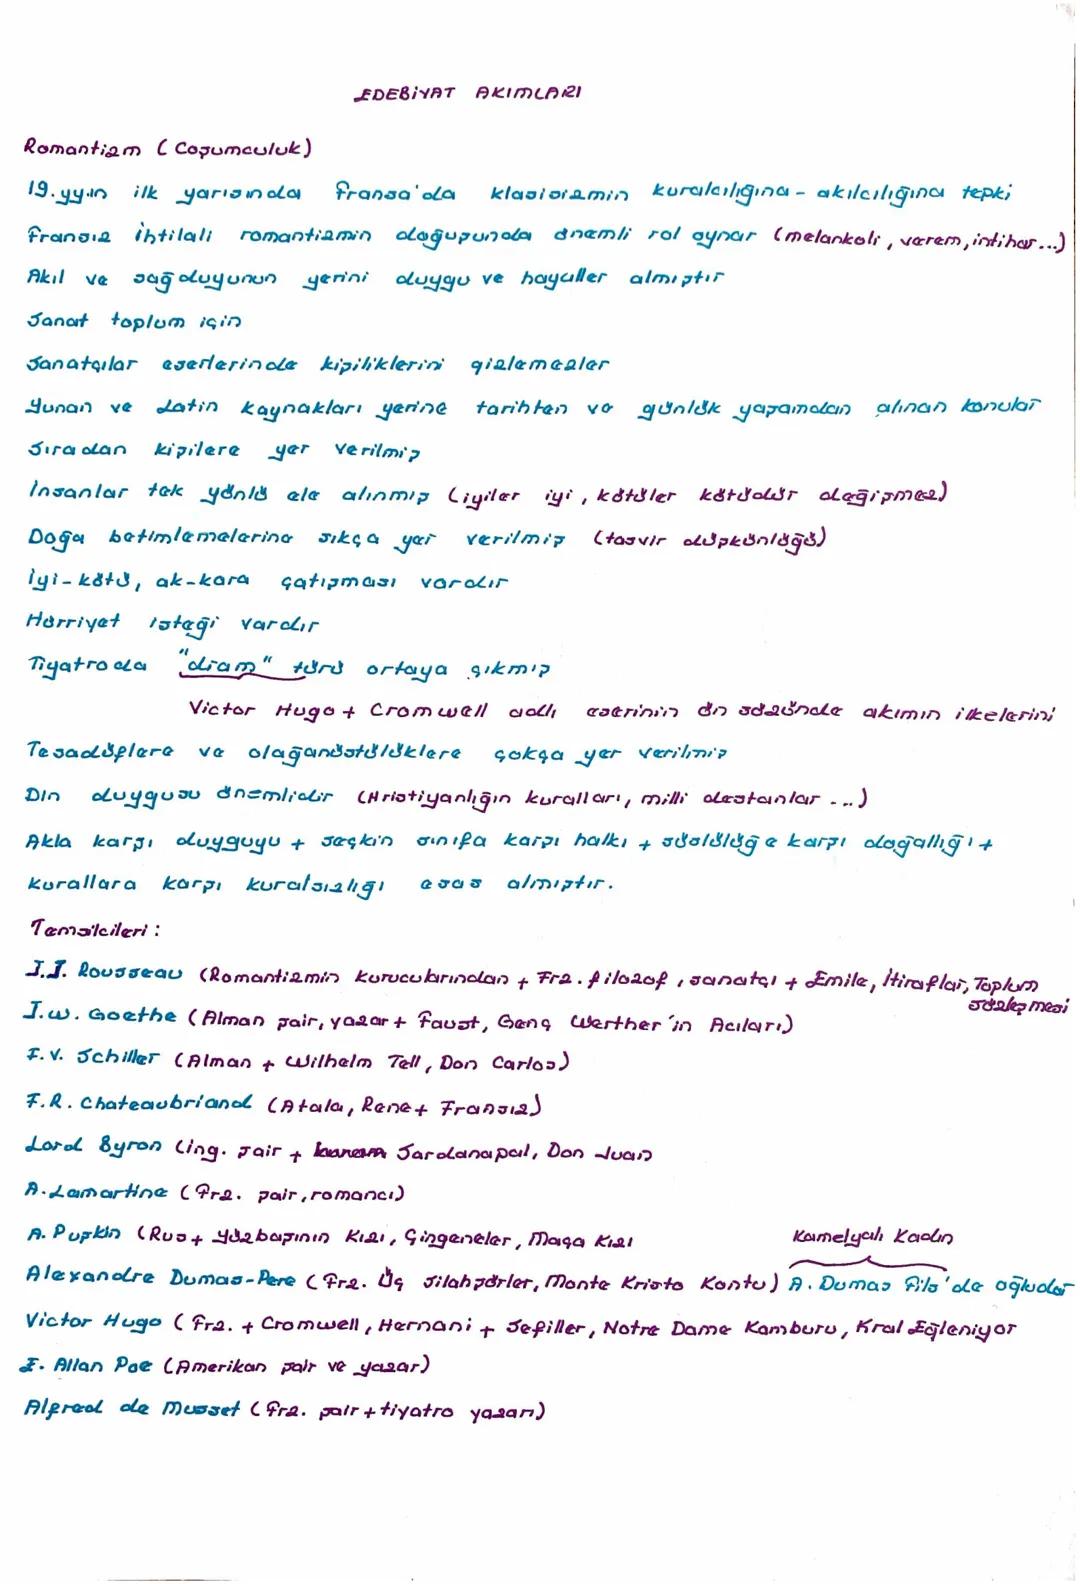 EDEBİYAT AKIMLARI
Romantizm (Coşumculuk)
19.yy.ın ilk yarısında Fransa'da klasisizmin kuralcılığına - akılcılığına tepki
Fransız İhtilali romantizmin doğuşunda önemli rol oynar (melankoli, verem, intihar...)
Akıl ve sağduyunun yerini duygu ve hayaller almıştır
Sanat toplum için
Sanatçılar eserlerinde kişiliklerini gizlemezler
Yunan ve Latin kaynakları yerine tarihten ve günlük yaşamdan alınan konular
Sıradan kişilere yer verilmiş
İnsanlar tek yönlü ele alınmış (iyiler iyi, kötüler kötüdür değişmez)
Doğa betimlemelerine sıkça yer verilmiş (tasvir düşkünlüğü)
İyi-kötü, ak-kara çatışması vardır
Hürriyet isteği vardır
Tiyatroda "dram" türü ortaya çıkmış
Victor Hugo + Cromwell adlı eserinin ön sözünde akımın ilkelerini
Tesadüflere ve olağanüstülüklere çokça yer verilmiş
Din duygusu önemlidir (Hristiyanlığın kuralları, milli destanlar ...)
Akla karşı duyguyu + seçkin sınıfa karşı halkı + süslülüğe karşı doğallığı +
kurallara karşı kuralsızlığı esas almıştır.
Temsilcileri :
J.J. Rousseau (Romantizmin kurucularından + Frz. filozof, sanatçı + Emile, İtiraflar, Toplum
Sözleşmesi
J.W. Goethe (Alman şair, yazar + Faust, Genç Werther'in Acıları)
F.V. Schiller (Alman + Wilhelm Tell, Don Carlos)
F.R. Chateaubriand (Atala, Rene + Fransız)
Lord Byron (ing. şair + Sardanapal, Don Juan
A. Lamartine (Frz. şair, romancı)
A. Puşkin (Rus + Yüzbaşının Kızı, Çingeneler, Maça Kızı
Kamelyalı Kadın
Alexandre Dumas-Pere (Frz. Üç Silahşörler, Monte Kristo Kontu) A. Dumas Fils'de oğludur
Victor Hugo (Frz. + Cromwell, Hernani + Sefiller, Notre Dame Kamburu, Kral Eğleniyor
E. Allan Poe (Amerikan şair ve yazar)
Alfred de Musset (Frz. şair + tiyatro yazarı)